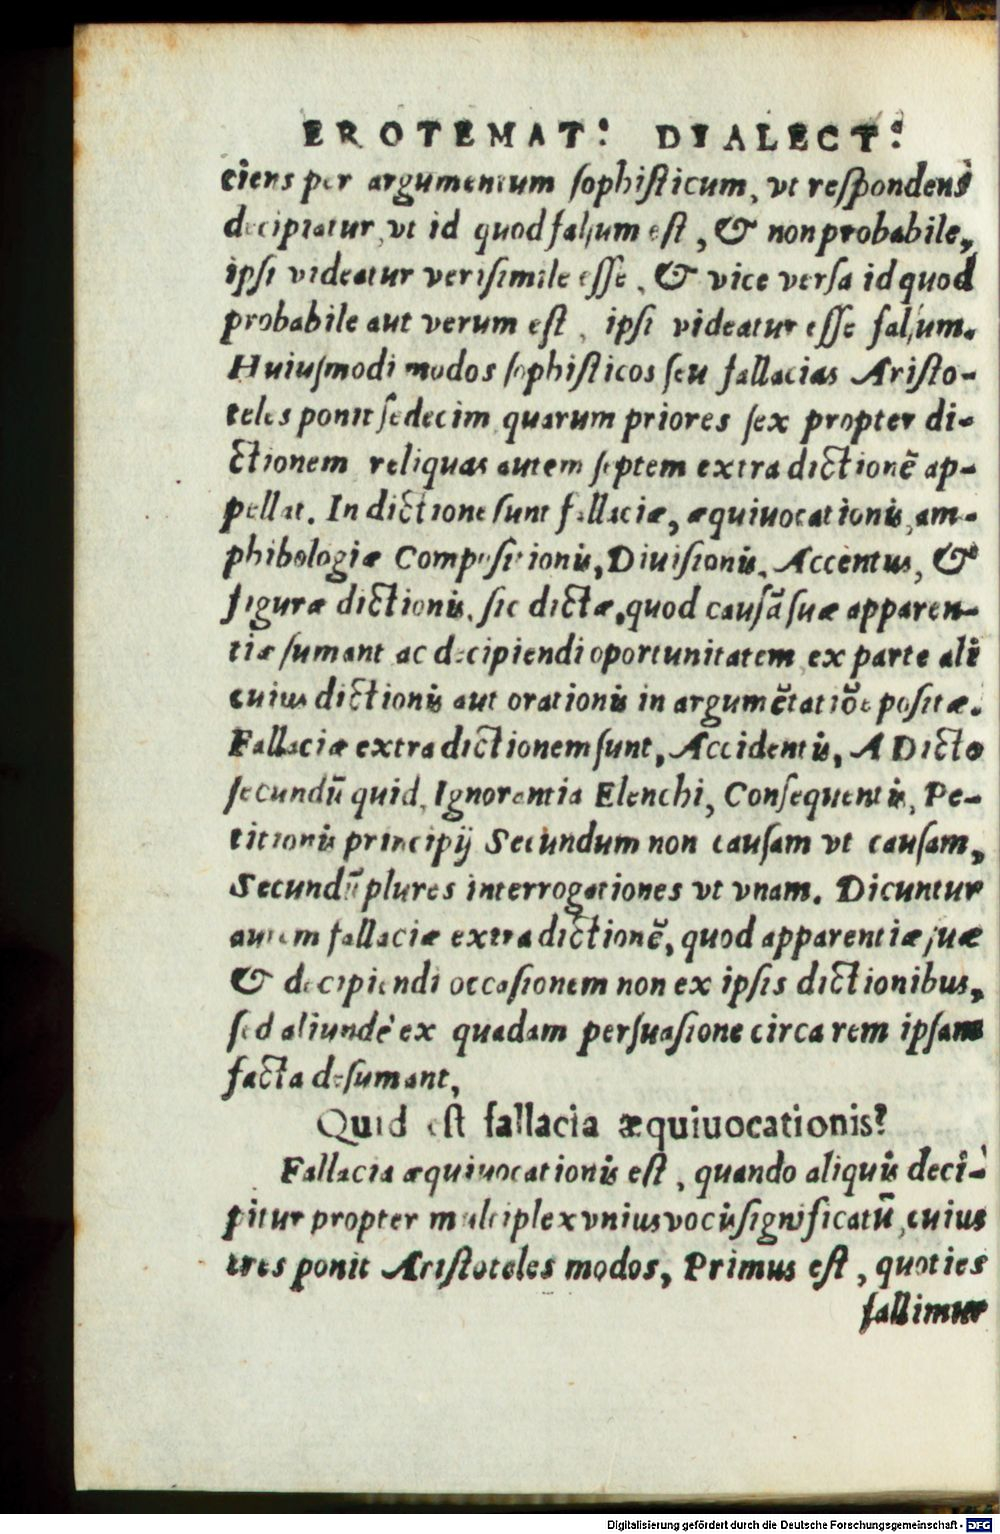 EROTEMAT: DIALECT:
ciens per argumentum sophisticum, vt respondens
decipiatur, vt id quod falsum est, & non probabile,
ipsi videatur verisimile esse, & vice versa id quod
probabile aut verum est, ipsi videatur esse falsum.
Huiusmodi modos sophisticos seu fallacias Aristo-
teles ponit sedecim quarum priores sex propter di-
ctionem reliquas autem septem extra dictionē ap-
pellat. In dictione sunt fallaciæ, æquiuocationis, am-
phibologiæ Compositionis, Diuisionis, Accentus, &
figuræ dictionis, sic dictæ, quod causā suæ apparen-
tiæ sumant ac decipiendi oportunitatem ex parte ali
cuius dictionis aut orationis in argumētatiōe positæ.
Fallaciæ extra dictionem sunt, Accidentis, A Dicto
secundū quid, Ignorantia Elenchi, Consequentis, Pe-
titionis principij Secundum non causam vt causam,
Secundū plures interrogationes vt vnam. Dicuntur
autem fallaciæ extra dictionē, quod apparentiæ suæ
& decipiendi occasionem non ex ipsis dictionibus,
sed aliunde ex quadam persuasione circa rem ipsam
facta desumant,
Quid est fallacia æquiuocationis?
Fallacia æquiuocationis est, quando aliquis deci-
pitur propter multiplex vnius vocis significatū, cuius
tres ponit Aristoteles modos, Primus est, quoties
fallimur
Digitalisierung gefördert durch die Deutsche Forschungsgemeinschaft - DFG